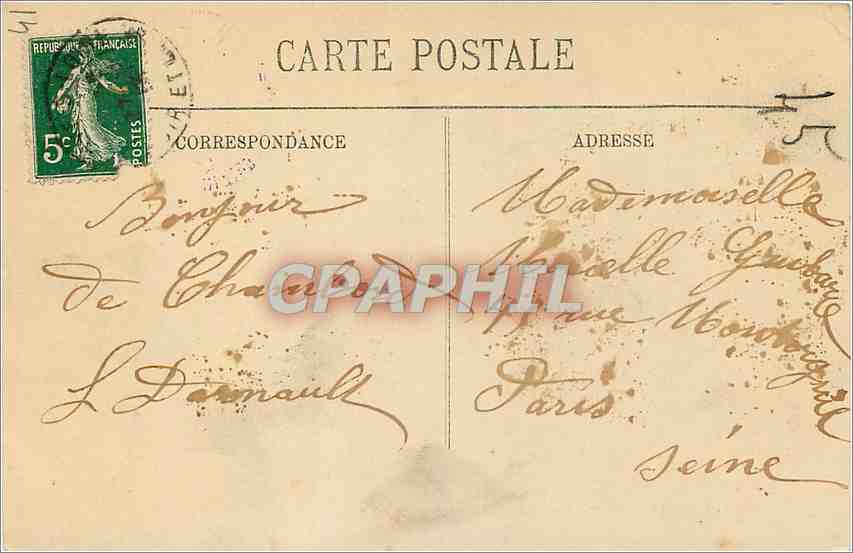 41
REPUBLIQUE FRANÇAISE
5c
POSTES
CARTE POSTALE
45
CORRESPONDANCE
ADRESSE
Bonjour
de Chambord
L Darnault
Mademoiselle
47 rue
Paris
Seine
CPAPHIL